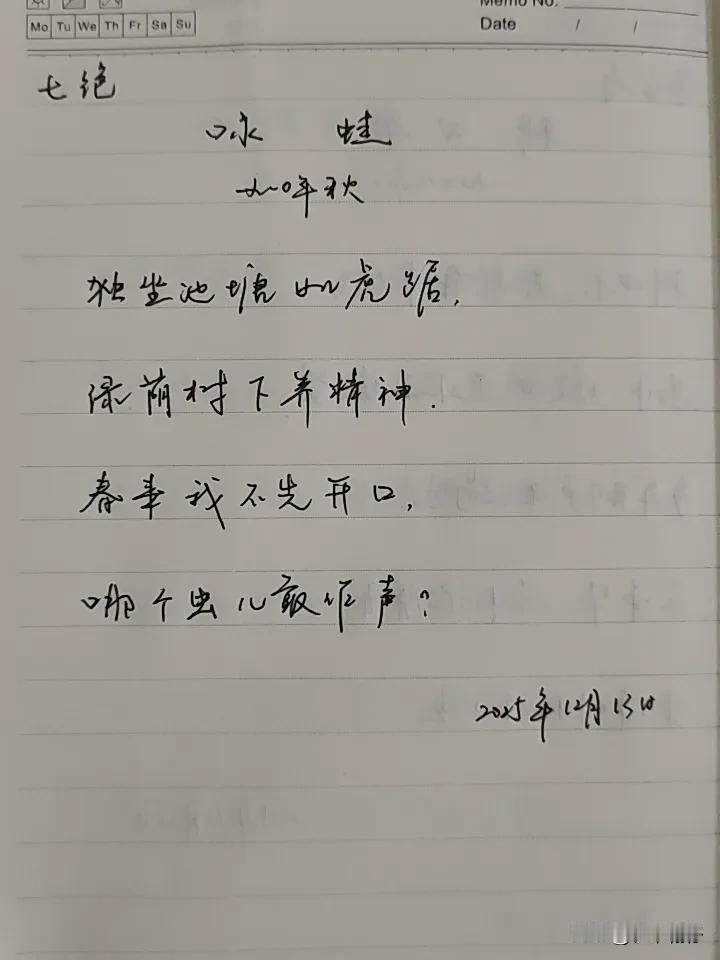 Memo No.
Mo Tu We Th Fr Sa Su
Date / /
七绝
咏 蛙
一九一0年秋
独坐池塘如虎踞，
绿荫树下养精神.
春来我不先开口，
哪个虫儿敢作声？
2025年12月13日